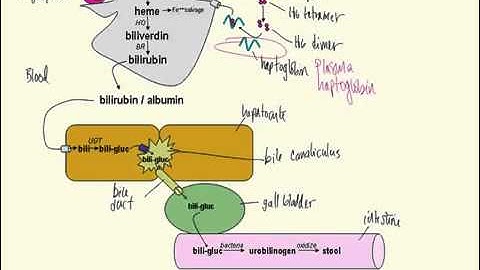 heme
Fe salvage
HO
biliverdin
BR
bilirubin
Hb tetramer
Hb dimer
haptoglobin
plasma
haptoglobin
Blood
bilirubin / albumin
hepatocyte
UGT
bili
bili-gluc
bili-gluc
bile canaliculus
bile
duct
bili-gluc
gall bladder
intestine
bili-gluc
bacteria
urobilinogen
oxidize
stool